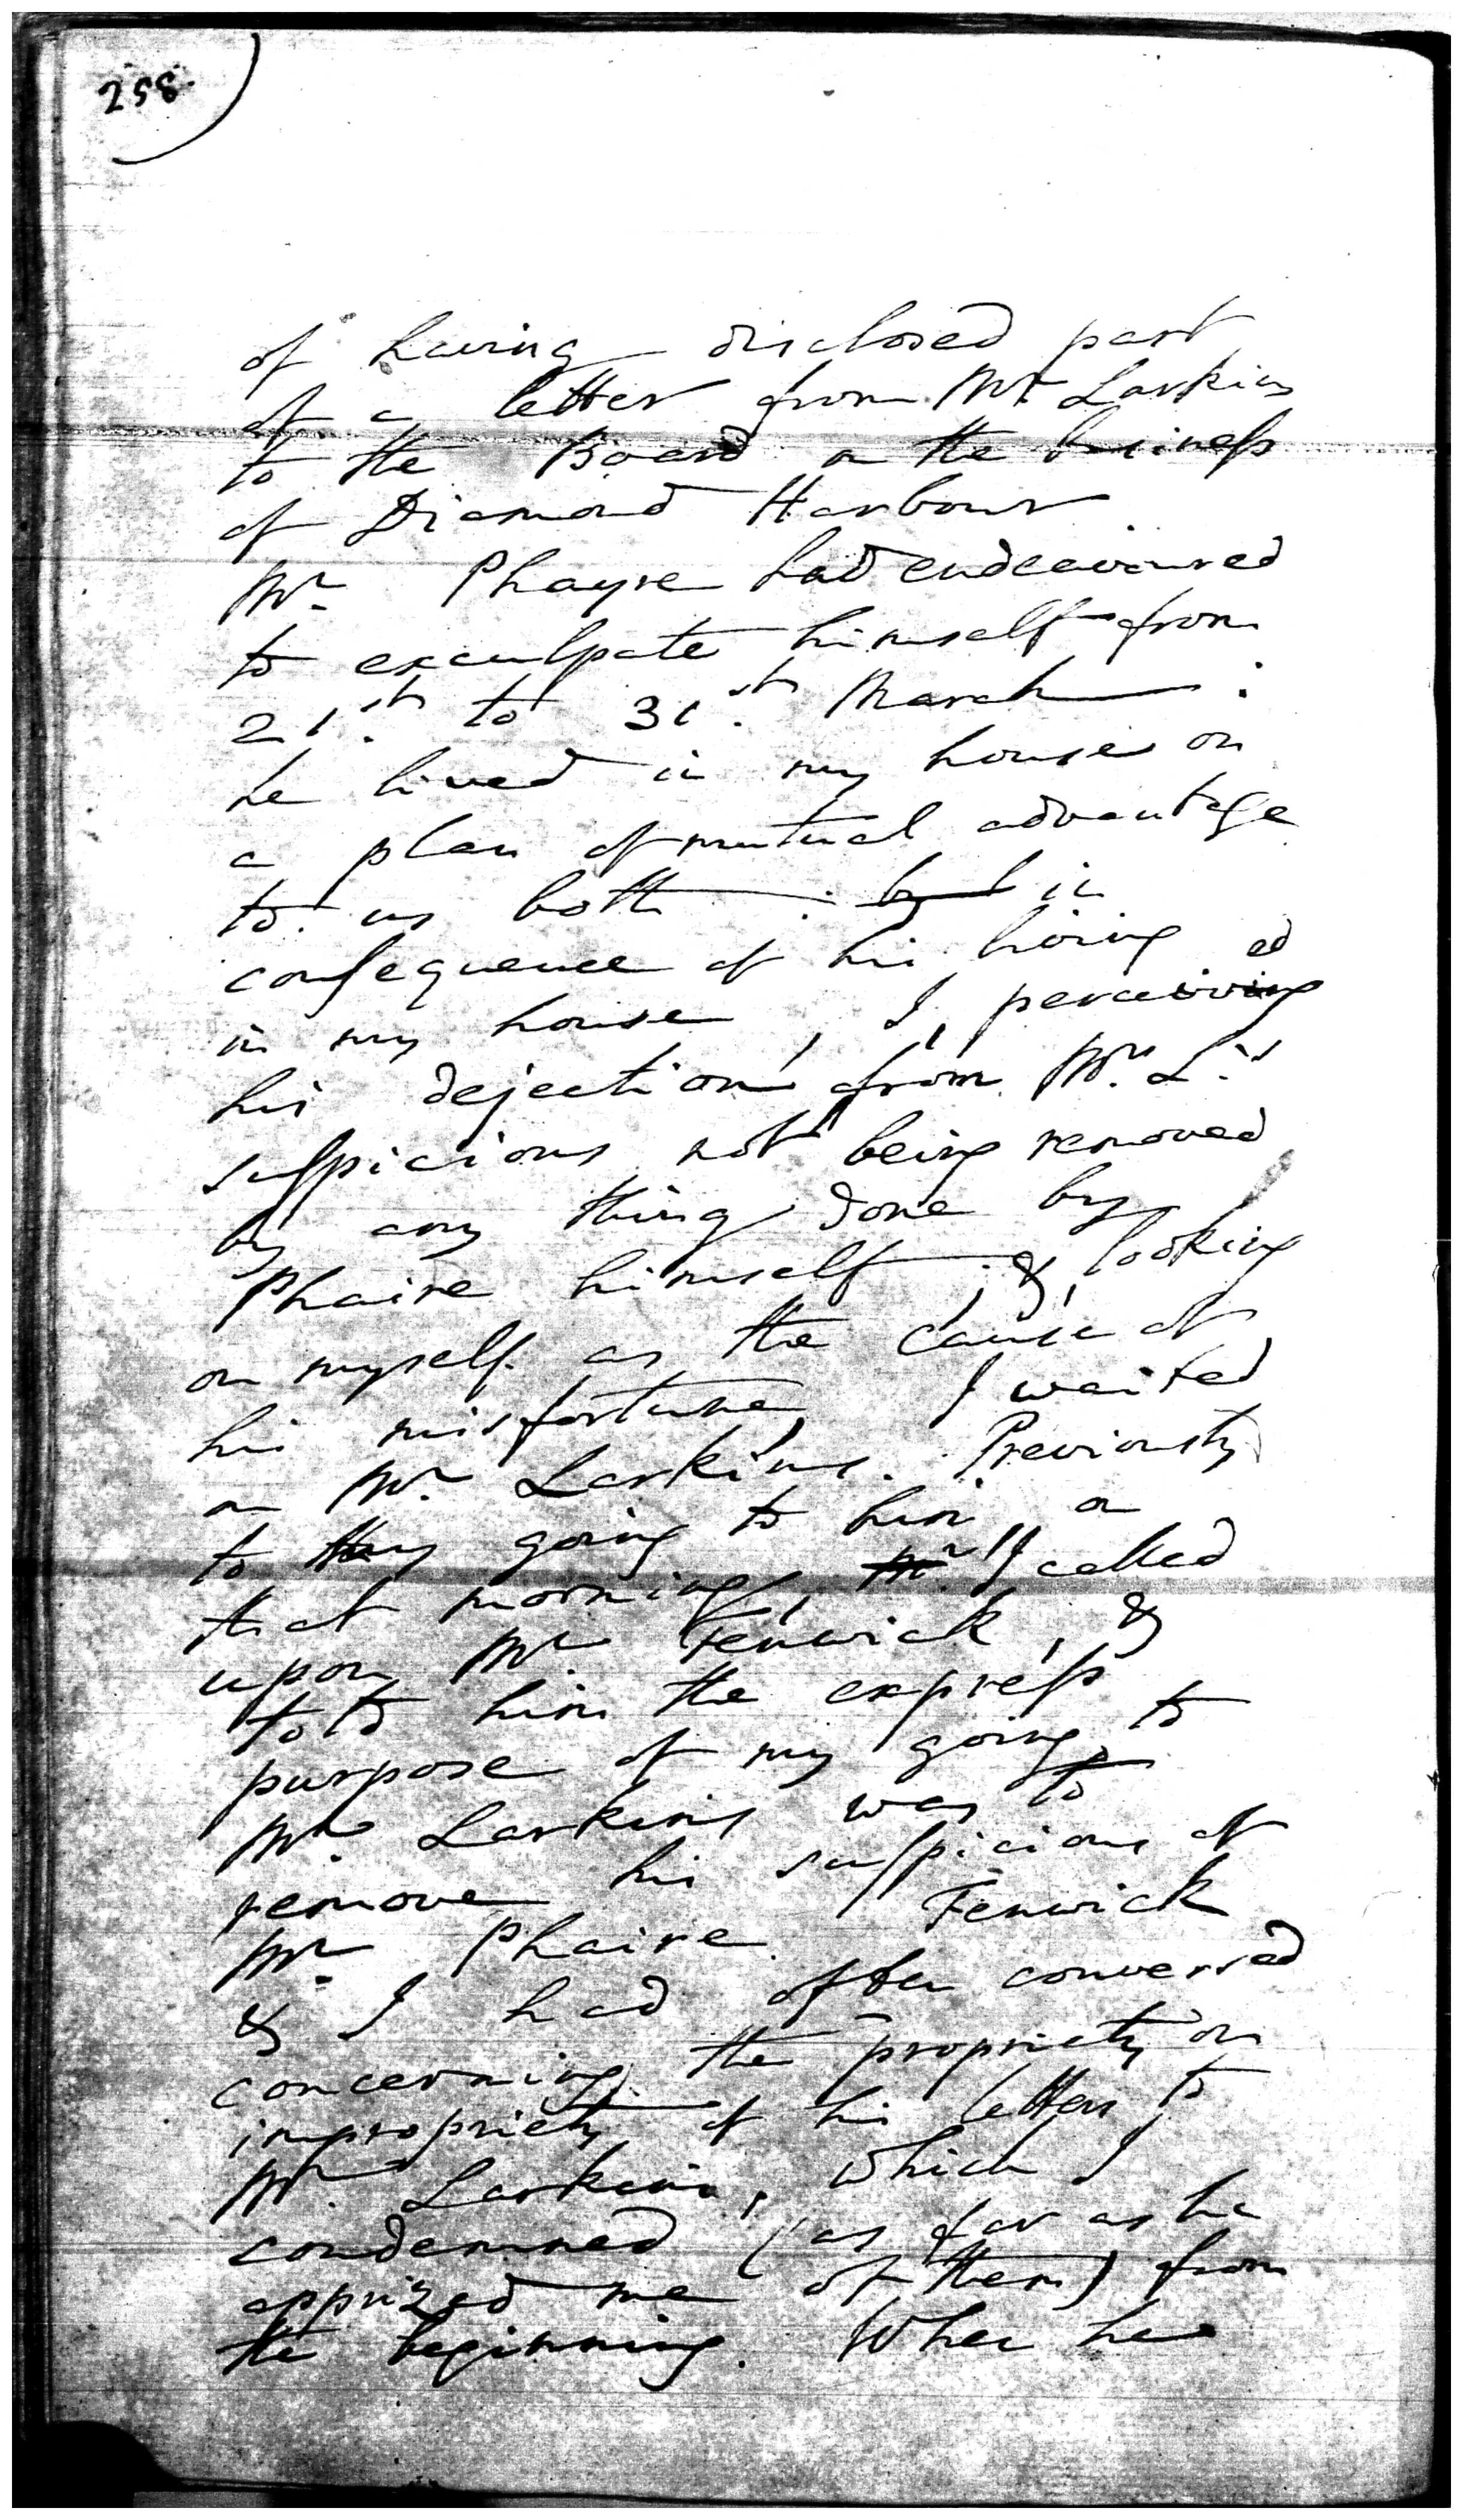 258.
of having disclosed part
of a letter from Mr. Larkins
to the Board on the business
of Diamond Harbour
Mr. Phayre had endeavoured
to exculpate himself from
21.st to 31.st March :
he lived in my house on
a plan of mutual advantage
to us both : in
consequence of his living
in my house, I, perceived
his dejection from Mr. L.'s
suspicions not being removed
by any thing done by
Phaire himself ; &, looking
on myself as the cause of
his misfortune, I waited
on Mr. Larkins. Previously
to my going to him, on
that morning, I called
upon Mr. Fenwick, &
told him the express
purpose of my going to
Mr. Larkins was to
remove his suspicions of
Mr. Phaire. Fenwick
& I had often conversed
concerning the propriety or
impropriety of his letters to
Mr. Larkins, which I
condemned (as far as he
apprized me of them) from
the beginning. When he